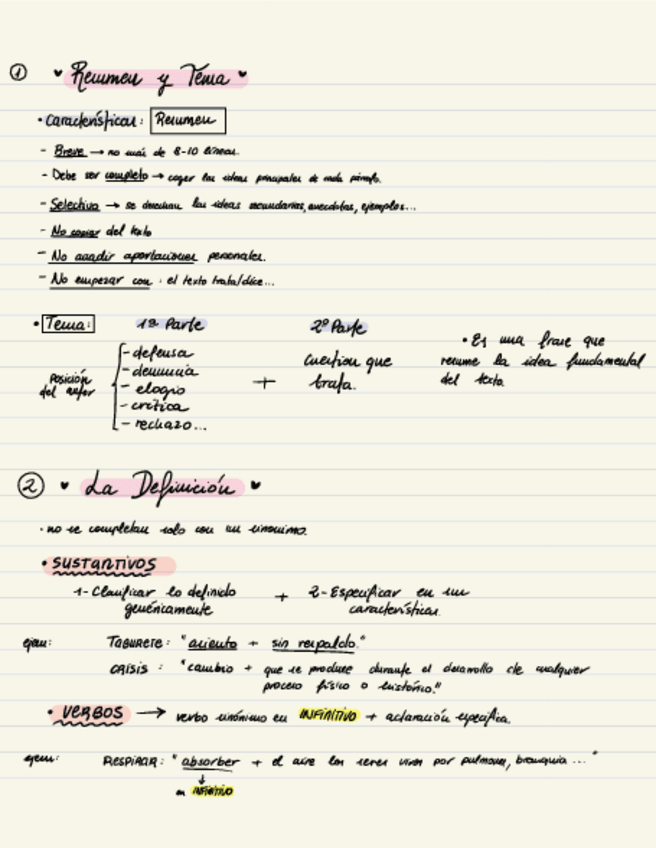 ① ♥ Resumen y Tema ♥
• Características: Resumen
- Breve → no más de 8-10 líneas.
- Debe ser completo → coger las ideas principales de cada párrafo.
- Selectivo → se desechan las ideas secundarias, anécdotas, ejemplos...
- No copiar del texto
- No añadir aportaciones personales.
- No empezar con: el texto trata/dice...
• Tema: 1ª Parte 2ª Parte
Posición del autor
- defensa
- denuncia
- elogio
- crítica
- rechazo...
+
Cuestion que
trata.
• Es una frase que
resume la idea fundamental
del texto.
② ♥ La Definición ♥
• no se completan solo con un sinónimo.
• SUSTANTIVOS
1- Clasificar lo definido + 2- Especificar en sus
genéricamente características.
ejem: TABURETE: "asiento + sin respaldo."
CRISIS: "cambio + que se produce durante el desarrollo de cualquier
proceso físico o histórico."
• VERBOS → verbo sinónimo en INFINITIVO + aclaración específica.
ejem: RESPIRAR: "absorber + el aire los seres vivos por pulmones, branquia ..."
↓
en INFINITIVO